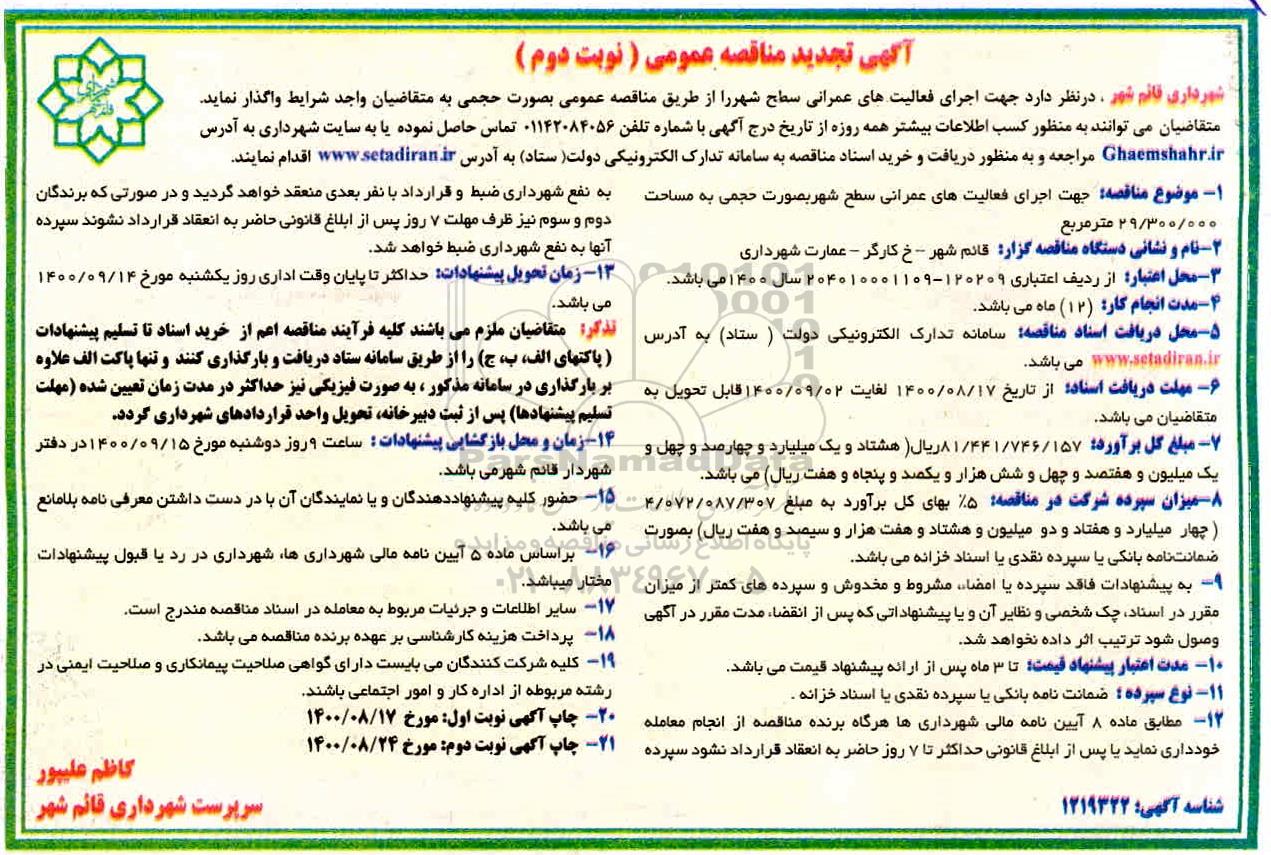 آگهی تجدید مناقصه عمومی ( نوبت دوم )
شهرداری قائم شهر
شهرداری قائم شهر ، درنظر دارد جهت اجرای فعالیت های عمرانی سطح شهررا از طریق مناقصه عمومی بصورت حجمی به متقاضیان واجد شرایط واگذار نماید.
متقاضیان می توانند به منظور کسب اطلاعات بیشتر همه روزه از تاریخ درج آگهی با شماره تلفن ۰۱۱۴۲۰۸۴۰۵۶ تماس حاصل نموده یا به سایت شهرداری به آدرس
Ghaemshahr.ir مراجعه و به منظور دریافت و خرید اسناد مناقصه به سامانه تدارک الکترونیکی دولت( ستاد) به آدرس www.setadiran.ir اقدام نمایند.
۱- موضوع مناقصه: جهت اجرای فعالیت های عمرانی سطح شهربصورت حجمی به مساحت
۲۹/۳۰۰/۰۰۰ مترمربع
۲-نام و نشانی دستگاه مناقصه گزار: قائم شهر – خ کارگر – عمارت شهرداری
۳-محل اعتبار: از ردیف اعتباری ۱۲۰۲۰۹-۲۰۴۰۱۰۰۰۱۱۰۹ سال ۱۴۰۰می باشد.
۴-مدت انجام کار: (۱۲) ماه می باشد.
۵-محل دریافت اسناد مناقصه: سامانه تدارک الکترونیکی دولت ( ستاد) به آدرس
www.setadiran.ir می باشد.
۶- مهلت دریافت اسناد: از تاریخ ۱۴۰۰/۰۸/۱۷ لغایت ۱۴۰۰/۰۹/۰۲قابل تحویل به
متقاضیان می باشد.
۷- مبلغ کل برآورد: ۸۱/۴۴۱/۷۴۶/۱۵۷ریال( هشتاد و یک میلیارد و چهارصد و چهل و
یک میلیون و هفتصد و چهل و شش هزار و یکصد و پنجاه و هفت ریال) می باشد.
۸-میزان سپرده شرکت در مناقصه: ۵٪ بهای کل برآورد به مبلغ ۴/۰۷۲/۰۸۷/۳۰۷
( چهار میلیارد و هفتاد و دو میلیون و هشتاد و هفت هزار و سیصد و هفت ریال) بصورت
ضمانت‌نامه بانکی یا سپرده نقدی یا اسناد خزانه می باشد.
۹- به پیشنهادات فاقد سپرده یا امضاء، مشروط و مخدوش و سپرده های کمتر از میزان
مقرر در اسناد، چک شخصی و نظایر آن و یا پیشنهاداتی که پس از انقضاء مدت مقرر در آگهی
وصول شود ترتیب اثر داده نخواهد شد.
۱۰- مدت اعتبار پیشنهاد قیمت: تا ۳ ماه پس از ارائه پیشنهاد قیمت می باشد.
۱۱- نوع سپرده : ضمانت نامه بانکی یا سپرده نقدی یا اسناد خزانه .
۱۲- مطابق ماده ۸ آیین نامه مالی شهرداری ها هرگاه برنده مناقصه از انجام معامله
خودداری نماید یا پس از ابلاغ قانونی حداکثر تا ۷ روز حاضر به انعقاد قرارداد نشود سپرده
شناسه آگهی: ۱۲۱۹۳۲۲
به نفع شهرداری ضبط و قرارداد با نفر بعدی منعقد خواهد گردید و در صورتی که برندگان
دوم و سوم نیز ظرف مهلت ۷ روز پس از ابلاغ قانونی حاضر به انعقاد قرارداد نشوند سپرده
آنها به نفع شهرداری ضبط خواهد شد.
۱۳- زمان تحویل پیشنهادات: حداکثر تا پایان وقت اداری روز یکشنبه مورخ ۱۴۰۰/۰۹/۱۴
می باشد.
تذکر: متقاضیان ملزم می باشند کلیه فرآیند مناقصه اعم از خرید اسناد تا تسلیم پیشنهادات
( پاکتهای الف، ب، ج) را از طریق سامانه ستاد دریافت و بارگذاری کنند و تنها پاکت الف علاوه
بر بارگذاری در سامانه مذکور ، به صورت فیزیکی نیز حداکثر در مدت زمان تعیین شده (مهلت
تسلیم پیشنهادها) پس از ثبت دبیرخانه، تحویل واحد قراردادهای شهرداری گردد.
۱۴-زمان و محل بازگشایی پیشنهادات : ساعت ۹روز دوشنبه مورخ ۱۴۰۰/۰۹/۱۵در دفتر
شهردار قائم شهرمی باشد.
۱۵- حضور کلیه پیشنهاددهندگان و یا نمایندگان آن با در دست داشتن معرفی نامه بلامانع
می باشد.
۱۶- براساس ماده ۵ آیین نامه مالی شهرداری ها، شهرداری در رد یا قبول پیشنهادات
مختار میباشد.
۱۷- سایر اطلاعات و جزئیات مربوط به معامله در اسناد مناقصه مندرج است.
۱۸- پرداخت هزینه کارشناسی بر عهده برنده مناقصه می باشد.
۱۹- کلیه شرکت کنندگان می بایست دارای گواهی صلاحیت پیمانکاری و صلاحیت ایمنی در
رشته مربوطه از اداره کار و امور اجتماعی باشند.
۲۰- چاپ آگهی نوبت اول: مورخ ۱۴۰۰/۰۸/۱۷
۲۱- چاپ آگهی نوبت دوم: مورخ ۱۴۰۰/۰۸/۲۴
کاظم علیپور
سرپرست شهرداری قائم شهر
ParsNamadData
پایگاه اطلاع رسانی مناقصه و مزایده
۰۲۱-۸۸۳۴۹۶۷۰-۵